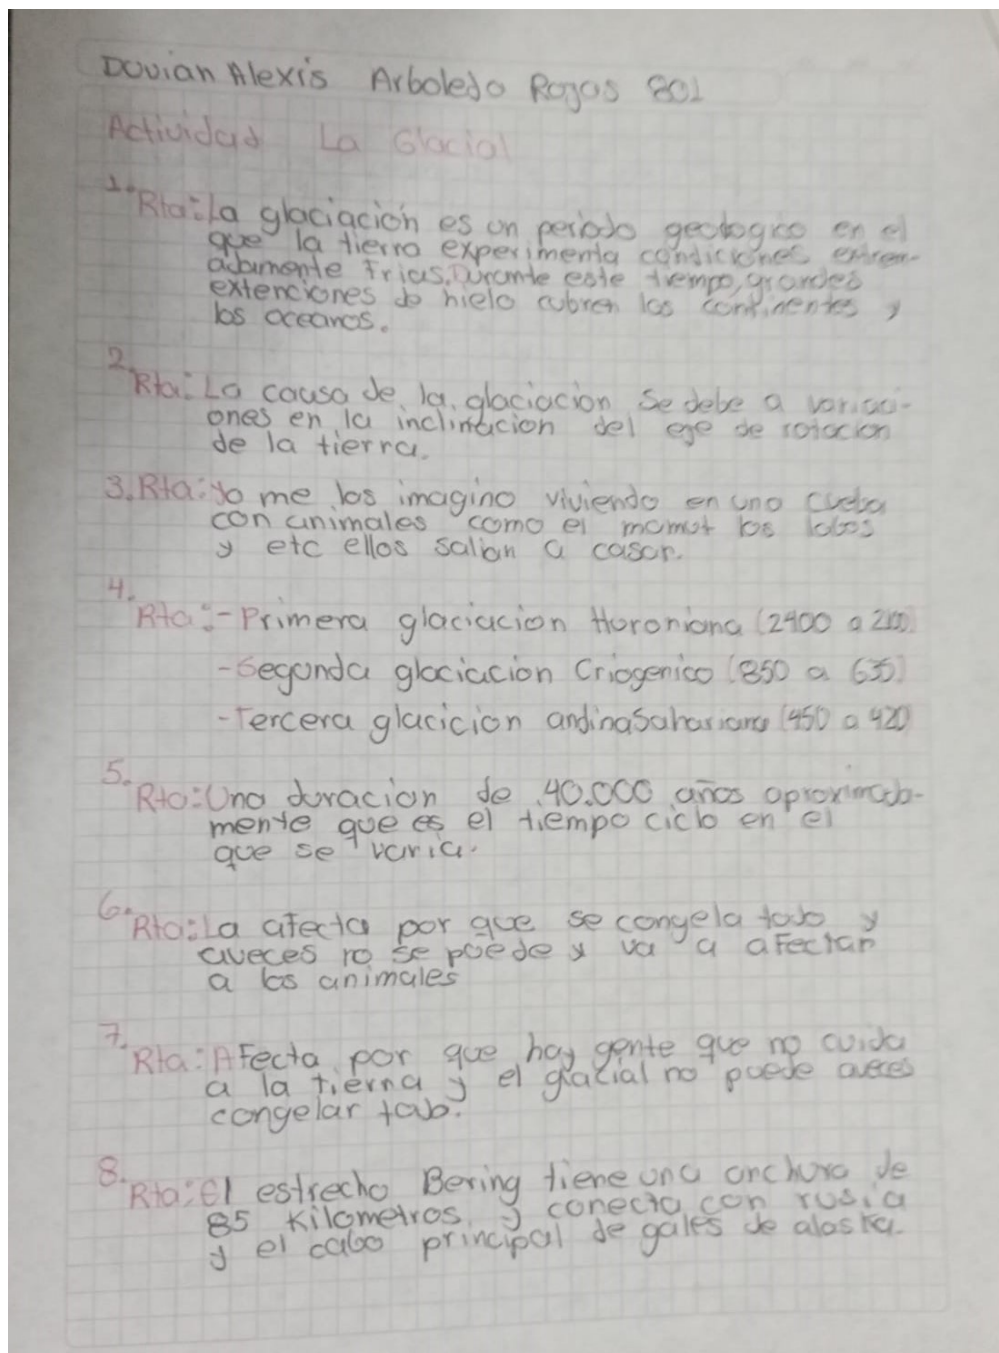 Dovian Alexis Arboledo Rojas 801
Actividad La Glacial
1. Rta: La glaciación es un periodo geologico en el
que la tierra experimenta condiciones extrem-
adamente frias. Durante este tiempo, grandes
extenciones de hielo cubren los continentes y
los oceanos.
2. Rta: La causa de la glaciación se debe a variaci-
ones en la inclinacion del eje de rotacion
de la tierra.
3. Rta: Yo me los imagino viviendo en una cueba
con animales como el mamut los lobos
y etc ellos salian a casar.
4.
Rta: - Primera glaciacion Huroniana (2400 a 2100)
- Segunda glaciacion Criogenico (850 a 635)
- Tercera glacicion andinaSahariana (450 a 420)
5.
Rta: Una duracion de 40.000 años aproximada-
mente que es el tiempo ciclo en el
que se varia.
6. Rta: La afecta por que se congela todo y
aveces no se puede y va a afectar
a los animales
7.
Rta: Afecta por que hay gente que no cuida
a la tierra y el glacial no puede aveces
congelar todo.
8. Rta: El estrecho Bering tiene una anchura de
85 Kilometros, y conecta con rusia
y el cabo principal de gales de alaska.